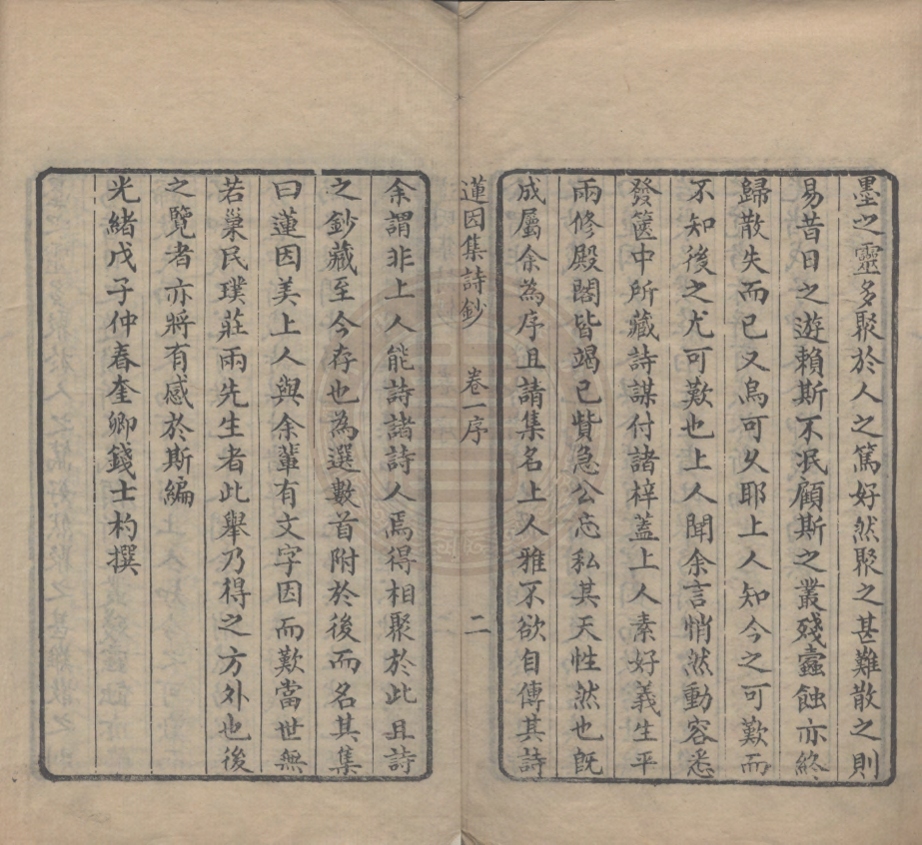 墨之靈多聚於人之篤好然聚之甚難散之則
易昔日之遊賴斯不泯顧斯之叢殘蠹蝕亦終
歸散失而已又烏可久耶上人知今之可歎而
不知後之尤可歎也上人聞余言悄然動容悉
發篋中所藏詩謀付諸梓蓋上人素好義生平
兩修殿閣皆竭己貲急公忘私其天性然也旣
成屬余為序且請集名上人雅不欲自傳其詩
蓮因集詩鈔 卷一序 二
余謂非上人能詩諸詩人焉得相聚於此且詩
之鈔藏至今存也為選數首附於後而名其集
曰蓮因美上人與余輩有文字因而歎當世無
若巢民璞莊兩先生者此舉乃得之方外也後
之覽者亦將有感於斯編
光緒戊子仲春奎卿錢士杓撰